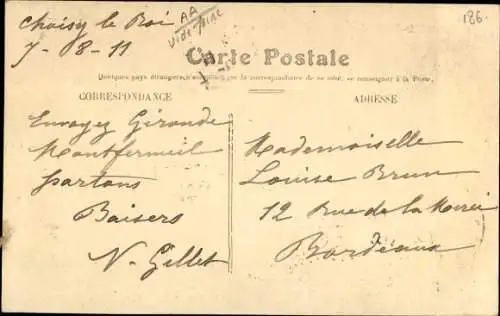 Choisy le Roi
7-08-11
AA
Vide-poche
186.
Carte Postale
Quelques pays étrangers n'acceptent pas la correspondance de ce côté, se renseigner à la Poste.
CORRESPONDANCE
ADRESSE
Envoyez Gironde
Montfermeil
partons
Baisers
N. Gellet
Mademoiselle
Louise Brun
12 Rue de la Merci
Bordeaux